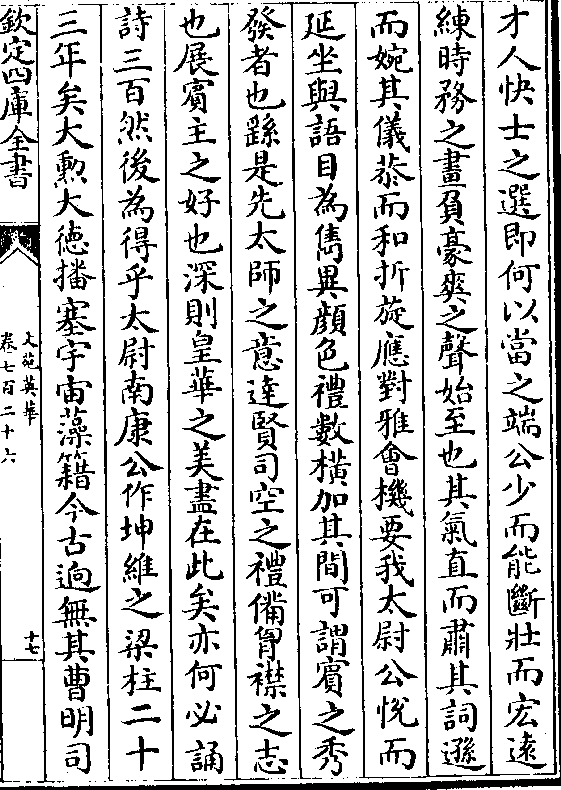 才人快士之選即何以當之端公少而能斷壯而宏遠
練時務之畫負豪爽之聲始至也其氣直而肅其詞遜
而婉其儀恭而和折旋應對雅會機要我太尉公悅而
延坐與語目為儁異顔色禮數橫加其間可謂賓之秀
發者也繇是先太師之意達賢司空之禮備胷襟之志
也展賓主之好也深則皇華之美盡在此矣亦何必誦
詩三百然後為得乎太尉南康公作坤維之梁柱二十
三年矣大勲大德播塞宇宙藻籍今古逈無其曹明司
欽定四庫全書
文苑英華
卷七百二十六
十七